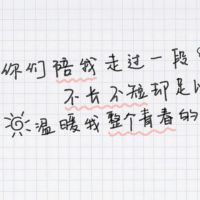 你们陪我走过一段
不长不短却是
温暖我整个青春的